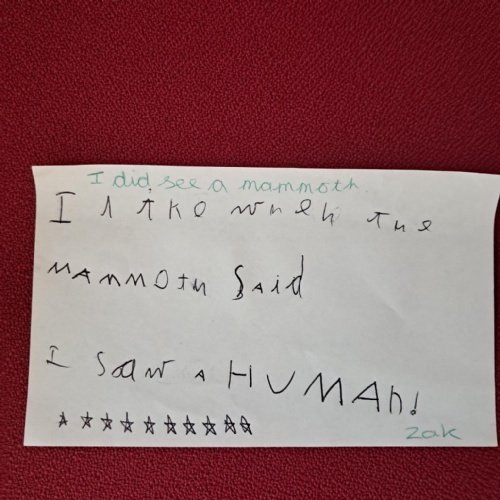 I did see a mammoth.
I likd when the
mAmmOth SAid
I Saw A HUMAn!
zak